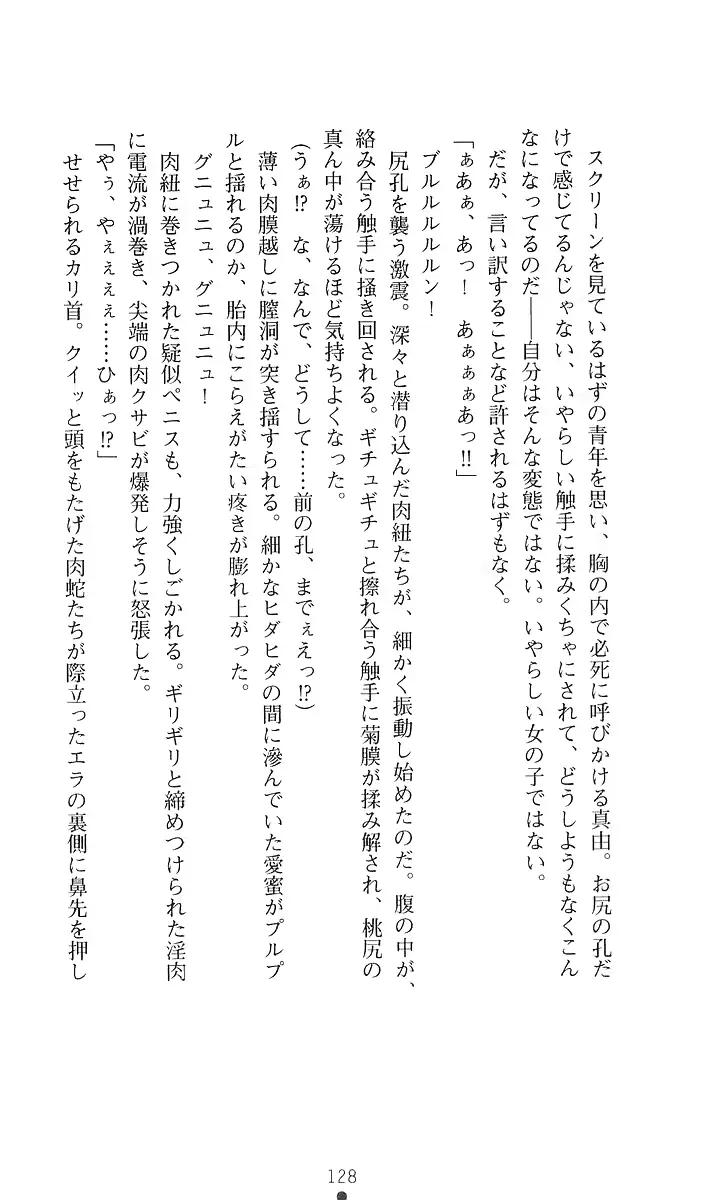 スクリーンを見ているはずの青年を思い、胸の内で必死に呼びかける真由。お尻の孔だ
けで感じてるんじゃない、いやらしい触手に揉みくちゃにされて、どうしようもなくこん
なになってるのだ――自分はそんな変態ではない。いやらしい女の子ではない。
だが、言い訳することなど許されるはずもなく。
「ぁあぁ、あっ！　あぁぁぁあっ!!」
ブルルルルルン！
尻孔を襲う激震。深々と潜り込んだ肉紐たちが、細かく振動し始めたのだ。腹の中が、
絡み合う触手に掻き回される。ギチュギチュと擦れ合う触手に菊膜が揉み解され、桃尻の
真ん中が蕩けるほど気持ちよくなった。
(うぁ!?　な、なんで、どうして……前の孔、までぇえっ!?)
薄い肉膜越しに膣洞が突き揺すられる。細かなヒダヒダの間に滲んでいた愛蜜がプルプ
ルと揺れるのか、胎内にこらえがたい疼きが膨れ上がった。
グニュニュ、グニュニュ！
肉紐に巻きつかれた疑似ペニスも、力強くしごかれる。ギリギリと締めつけられた淫肉
に電流が渦巻き、尖端の肉クサビが爆発しそうに怒張した。
「やぅ、やぇぇぇぇ……ひぁっ!?」
せせられるカリ首。クイッと頭をもたげた肉蛇たちが際立ったエラの裏側に鼻先を押し
128